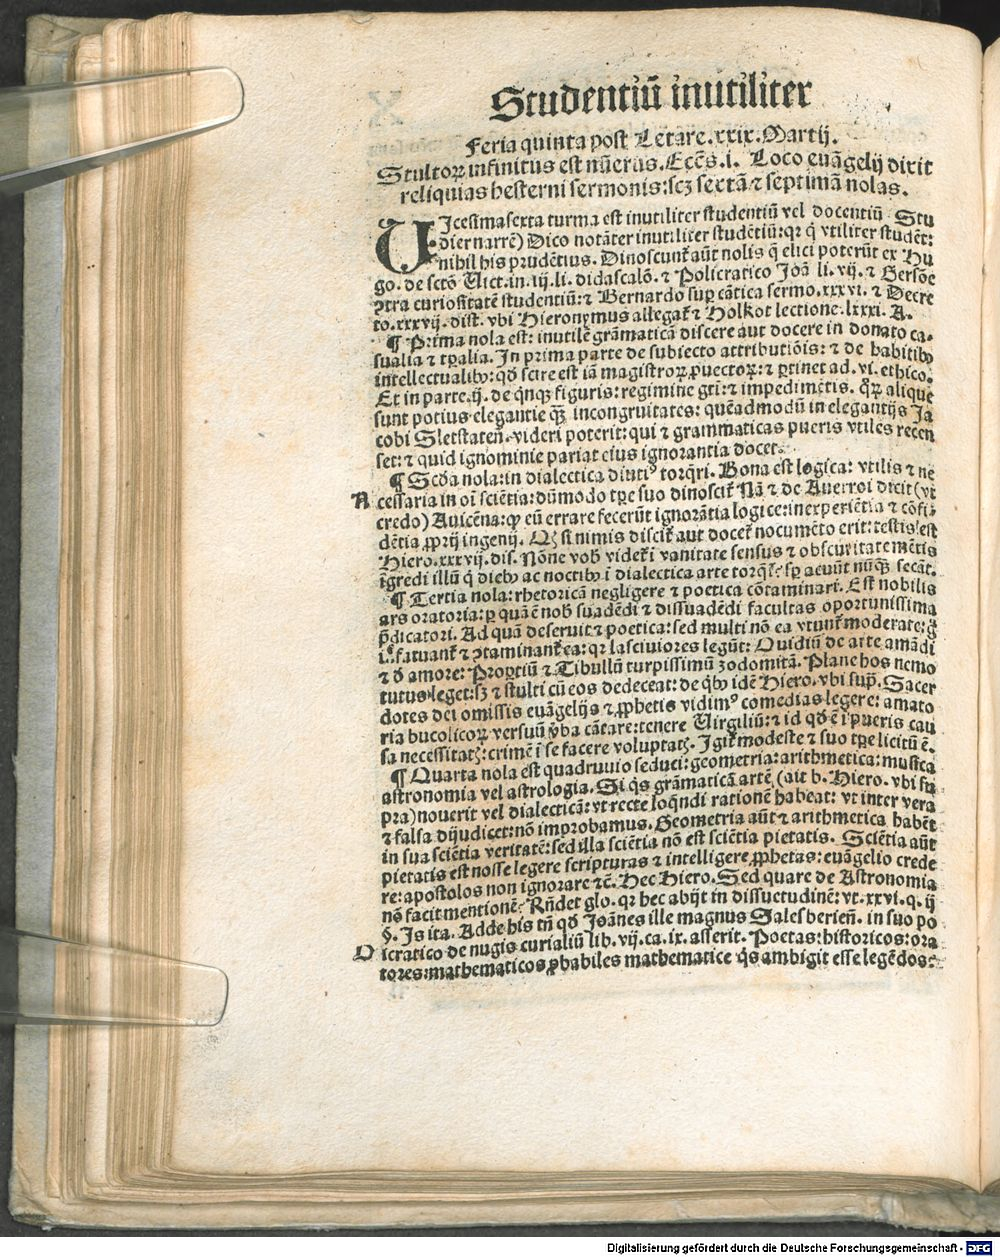 Studentiū inutiliter
Feria quinta post Letare.xxix.Martij.
Stultoꝝ infinitus est nūerus.Eccēs.i. Loco euāgelij dixit
reliquias hesterni sermonis:scꝫ sextā ⁊ septimā nolas.
VJcesimasexta turma est inutiliter studentiū vel docentiū (Stu
dier narrē) Dico notāter inutiliter studētiū:qꝛ q̄ vtiliter studēt:
nihil his prudētius. Dinoscunt᷑ aūt nolis q̄ elici poterūt ex Hu
go. de sctō Uict.in.iij.li.didascalō.⁊ Policratico Joā li.vij.⁊ Gersōe
ꝯtra curiositatē studentiū:⁊ Bernardo suꝑ cātica sermo.xxxvi.⁊ Decre
to.xxxvij.dist.vbi Hieronymus allegat᷑ ⁊ Holkot lectione.lxxxi. A.
¶ Prima nola est: inutilē grāmaticā discere aut docere in donato ca-
sualia ⁊ tꝑalia. In prima parte de subiecto attributiōis: ⁊ de habitibꝰ
intellectualibꝰ: qđ scire est iā magistroꝝ ꝓuectoꝝ: ⁊ ꝑtinet ad.vi.ethico.
Et in parte.ij.de q̄nqꝫ figuris: regimine gtī:⁊ impedimētis. q̄ꝝ alique
sunt potius elegantie q̄ꝫ incongruitates: quēadmodū in elegantijs Ja
cobi Sletstateñ.videri poterit: qui ⁊ grammaticas pueris vtiles recen
set: ⁊ quid ignominie pariat eius ignorantia docet.
¶ Scđa nola: in dialectica diutiꝰ torq̄ri. Bona est logica: vtilis ⁊ ne
A cessaria in oī sciētia: dūmodo tꝑe suo dinoscit᷑ Nā ⁊ de Auerroi dicit (vt
credo) Auicēna:ꝙ eū errare fecerūt ignorātia logice:inexperiētia ⁊ cōfi
dētia ꝓprij ingenij. Qꝫ si nimis discit᷑ aut docet᷑ nocumēto erit: testis est
Hiero.xxxvij.dis. Nōne vobꝭ videt᷑ ī vanitate sensus ⁊ obscuritate mētis
īgredi illū q̄ diebꝰ ac noctibꝰ ī dialectica arte torq̄t᷑
¶ Tertia nola: rhetoricā negligere ⁊ poetica cōtaminari. Est nobilis
ars oratoria: ꝑ quā ē nobꝭ suadēdi ⁊ dissuadēdi facultas oportunissima
p̄dicatori. Ad quā deseruit ⁊ poetica: sed multi nō ea vtunt᷑ moderate:
infatuant᷑ ⁊ ꝯtaminant᷑ ea: qꝛ lasciuiores legūt: Ouidiū de arte amādi
⁊ đ amore: Proꝑtiū ⁊ Tibullū turpissimū zodomitā. Plane hos nemo
tutus leget:sꝫ ⁊ stulti cū eos dedeceat: de q̄bꝰ idē Hiero.vbi supꝭ. Sacer
dotes dei omissis euāgelijs ⁊ ꝓphetis vidimꝰ comedias legere: amato
ria bucolicoꝝ versuū v̄ba cātare:tenere Uirgiliū: ⁊ id qđ ē ī pueris cau
sa necessitatꝭ: crimē ī se facere voluptatꝭ. Igit᷑ modeste ⁊ suo tꝑe licitū ē.
¶ Quarta nola est quadruuio seduci: geometria: arithmetica: musica
astronomia vel astrologia. Si q̄s grāmaticā artē (ait b. Hiero. vbi su
pra) nouerit vel dialecticā: vt recte loq̄ndi rationē habeat: vt inter vera
⁊ falsa dijudicet: nō improbamus. Geometria aūt ⁊ arithmetica habēt
in sua sciētia veritatē: sed illa sciētia nō est sciētia pietatis. Sciētia aūt
pietatis est nosse legere scripturas ⁊ intelligere ꝓphetas: euāgelio crede
re: apostolos non ignorare ⁊c̄. Hec Hiero. Sed quare de Astronomia
nō facit mentionē. Rñdet glo. qꝛ hec abijt in dissuetudinē: vt.xxvi.q.ij
§. Is ita. Adde his tñ qđ Joānes ille magnus Salesberieñ. in suo po
O icratico de nugis curialiū lib. vij.ca.ix.asserit. Poetas: historicos: ora
tores: mathematicos ꝓbabiles mathematice q̄s ambigit esse legēdos:
Digitalisierung gefördert durch die Deutsche Forschungsgemeinschaft - DFG